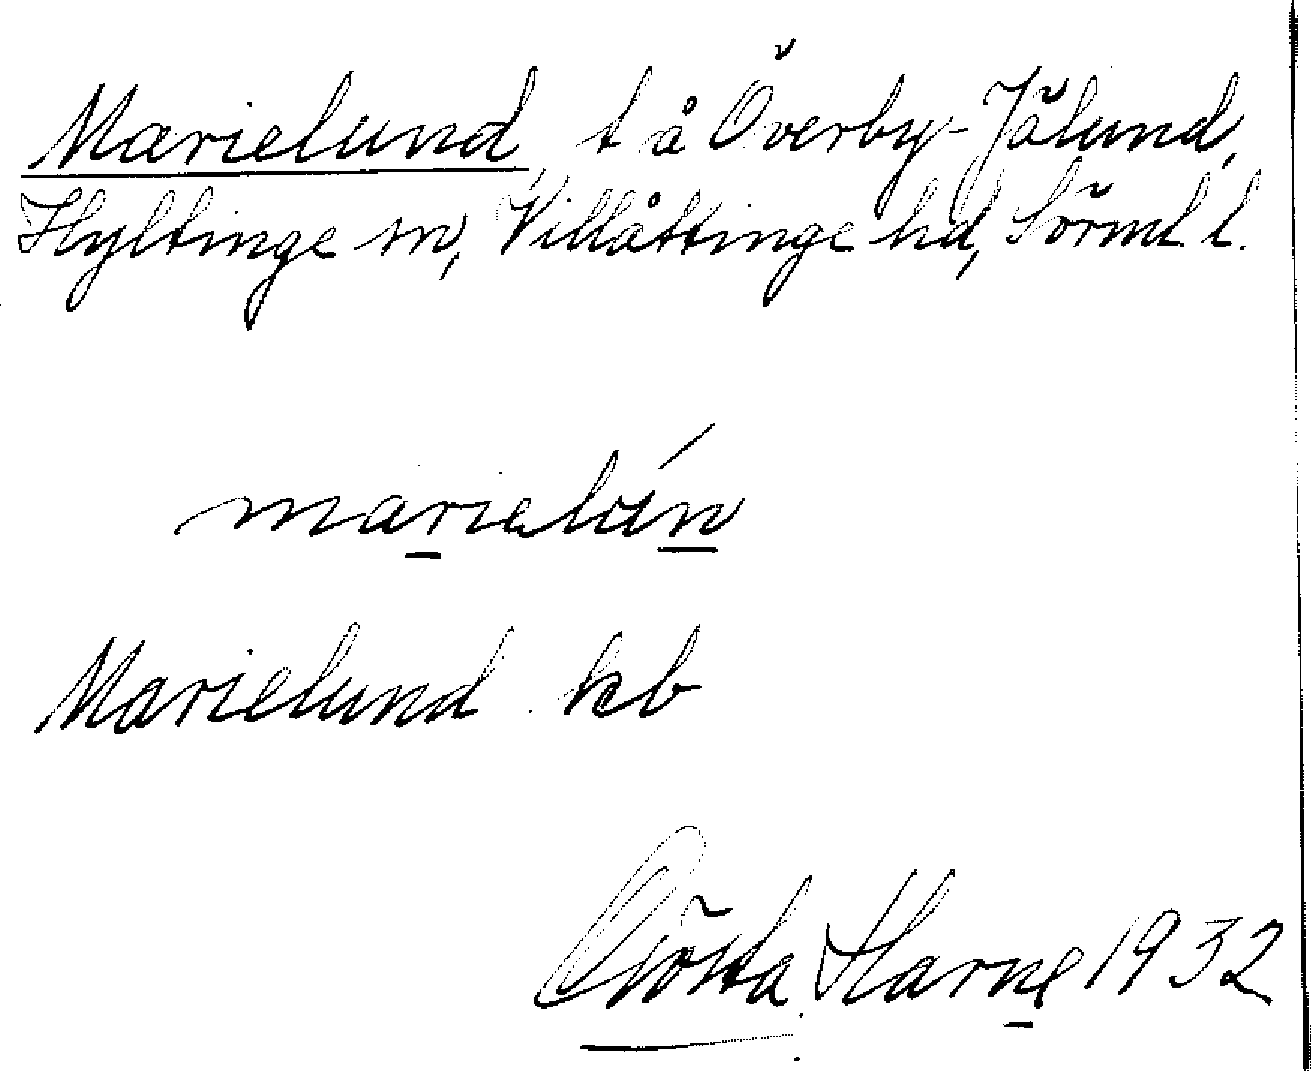 Marielund, t å Överby-Jälund,
Hyltinge sn, Villåttinge hd, Sörml l.
marielún
Marielund kb
Gösta Harne 1932